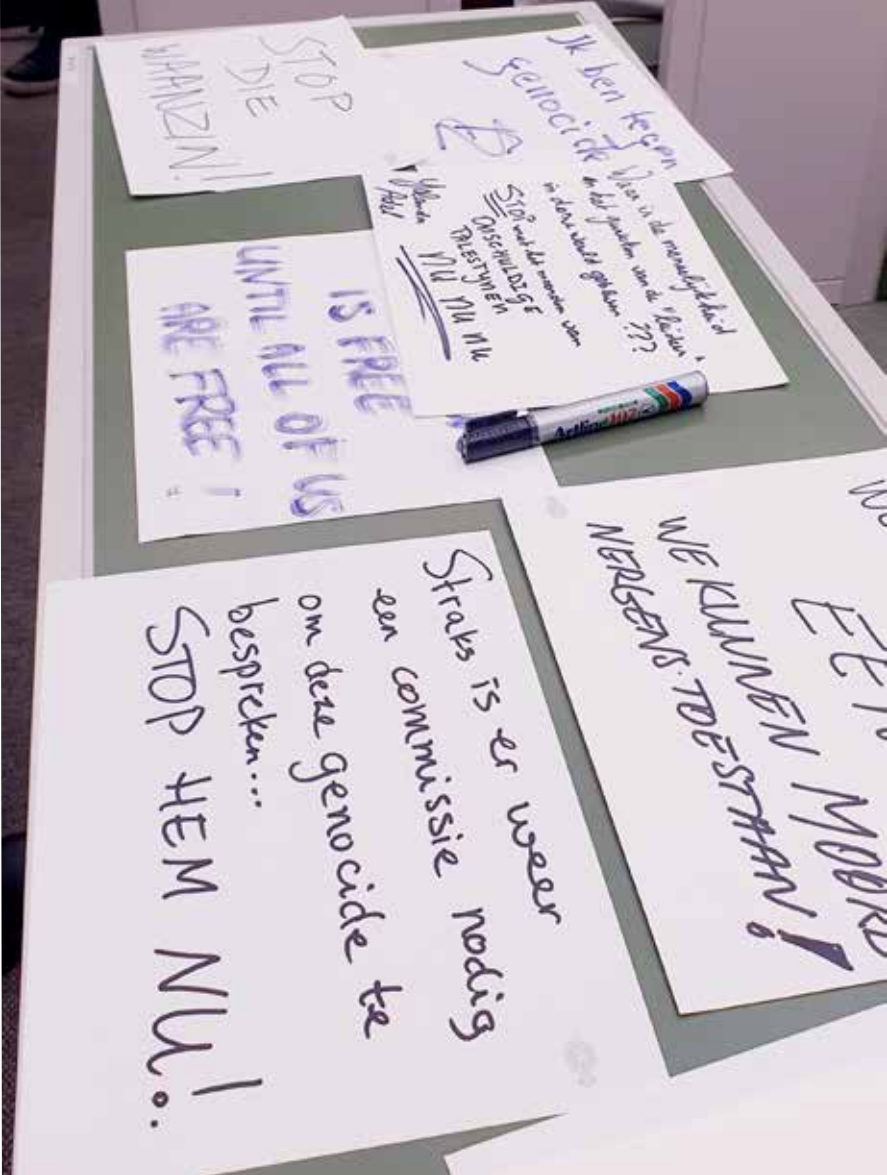 STOP
DIE
WAANZIN!
Ik ben tegen
genocide
Waar is de menselijkheid
en het geweten van de "leiders"
in deze wereld gebleven ???
STOP met het moorden van
ONSCHULDIGE
PALESTYNEN
NU NU NU
IS FREE
UNTIL ALL OF US
ARE FREE!
Artline
WE KUNNEN MOORD
NERGENS TOESTAAN!
Straks is er weer
een commissie nodig
om deze genocide te
bespreken...
STOP HEM NU!